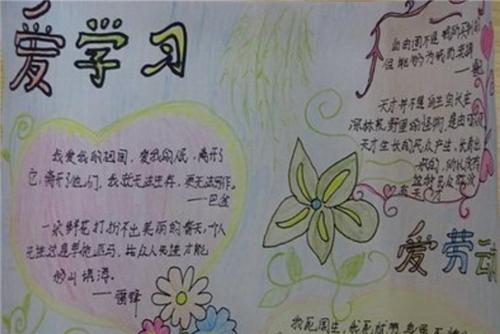 爱学习
我爱我的祖国,爱我的人民,离开了
它,离开了他们,我就无法生存,更无法写作。
——巴金
一朵鲜花打扮不出美丽的春天,个人
先进总是单枪匹马,众人先进才能
移山填海。
——雷锋
天才并不是自生自长在
深林荒野里的怪物,是由可以使
天才生长的民众产生、长育出
来的,所以没有
这种民众,就没有
天才
爱劳动